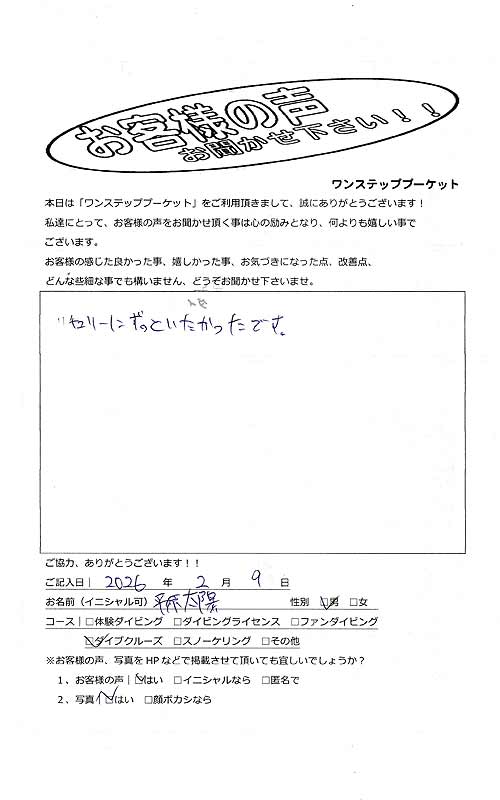 お客様の声
お聞かせ下さい！！
ワンステッププーケット
本日は「ワンステッププーケット」をご利用頂きまして、誠にありがとうございます！
私達にとって、お客様の声をお聞かせ頂く事は心の励みとなり、何よりも嬉しい事で
ございます。
お客様の感じた良かった事、嬉しかった事、お気づきになった点、改善点、
どんな些細な事でも構いません、どうぞお聞かせ下さいませ。
にずっといたかったです。
ご協力、ありがとうございます！！
ご記入日｜ 2026 年 2 月 9 日
お名前（イニシャル可） 太陽 性別 ☑男 □女
コース｜□体験ダイビング □ダイビングライセンス □ファンダイビング
☑ダイブクルーズ □スノーケリング □その他
※お客様の声、写真を HP などで掲載させて頂いても宜しいでしょうか？
１、お客様の声｜☑はい □イニシャルなら □匿名で
２、写真｜☑はい □顔ボカシなら